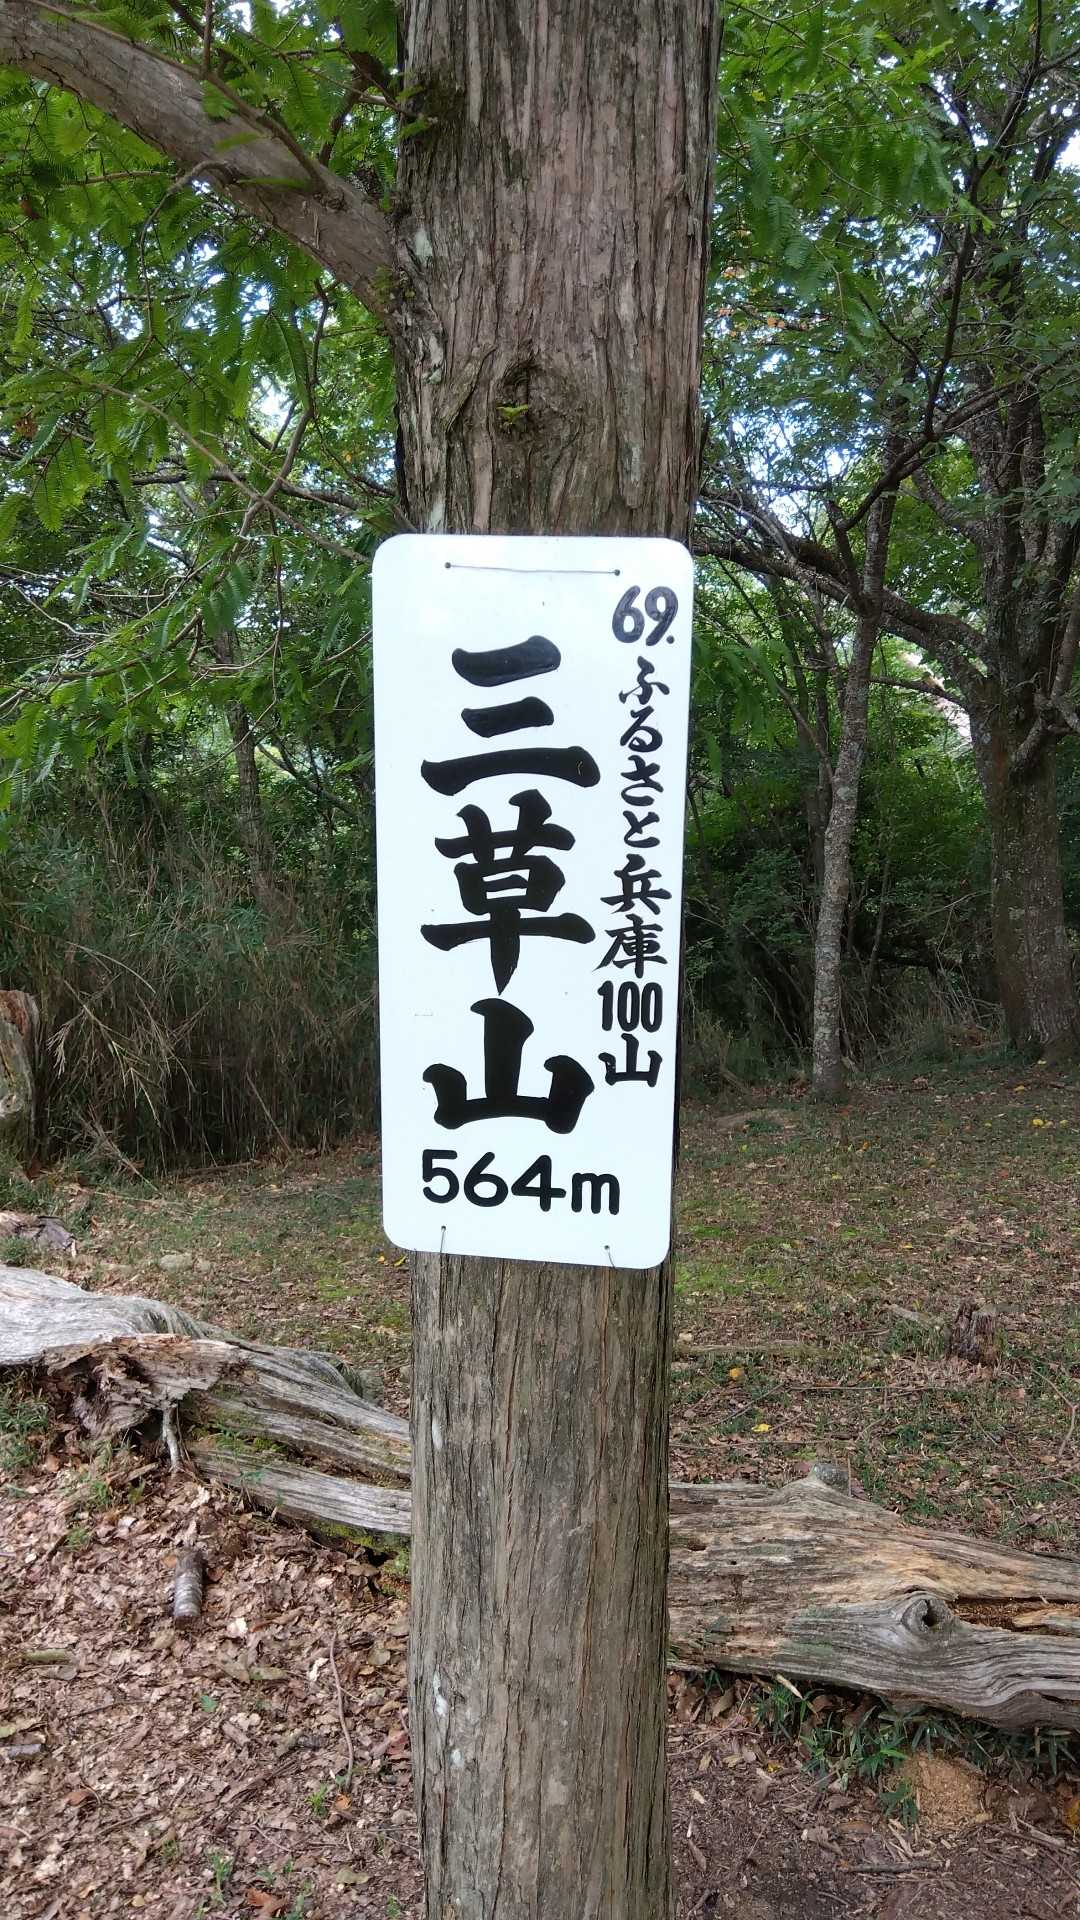 69.ふるさと兵庫100山
三草山
564m